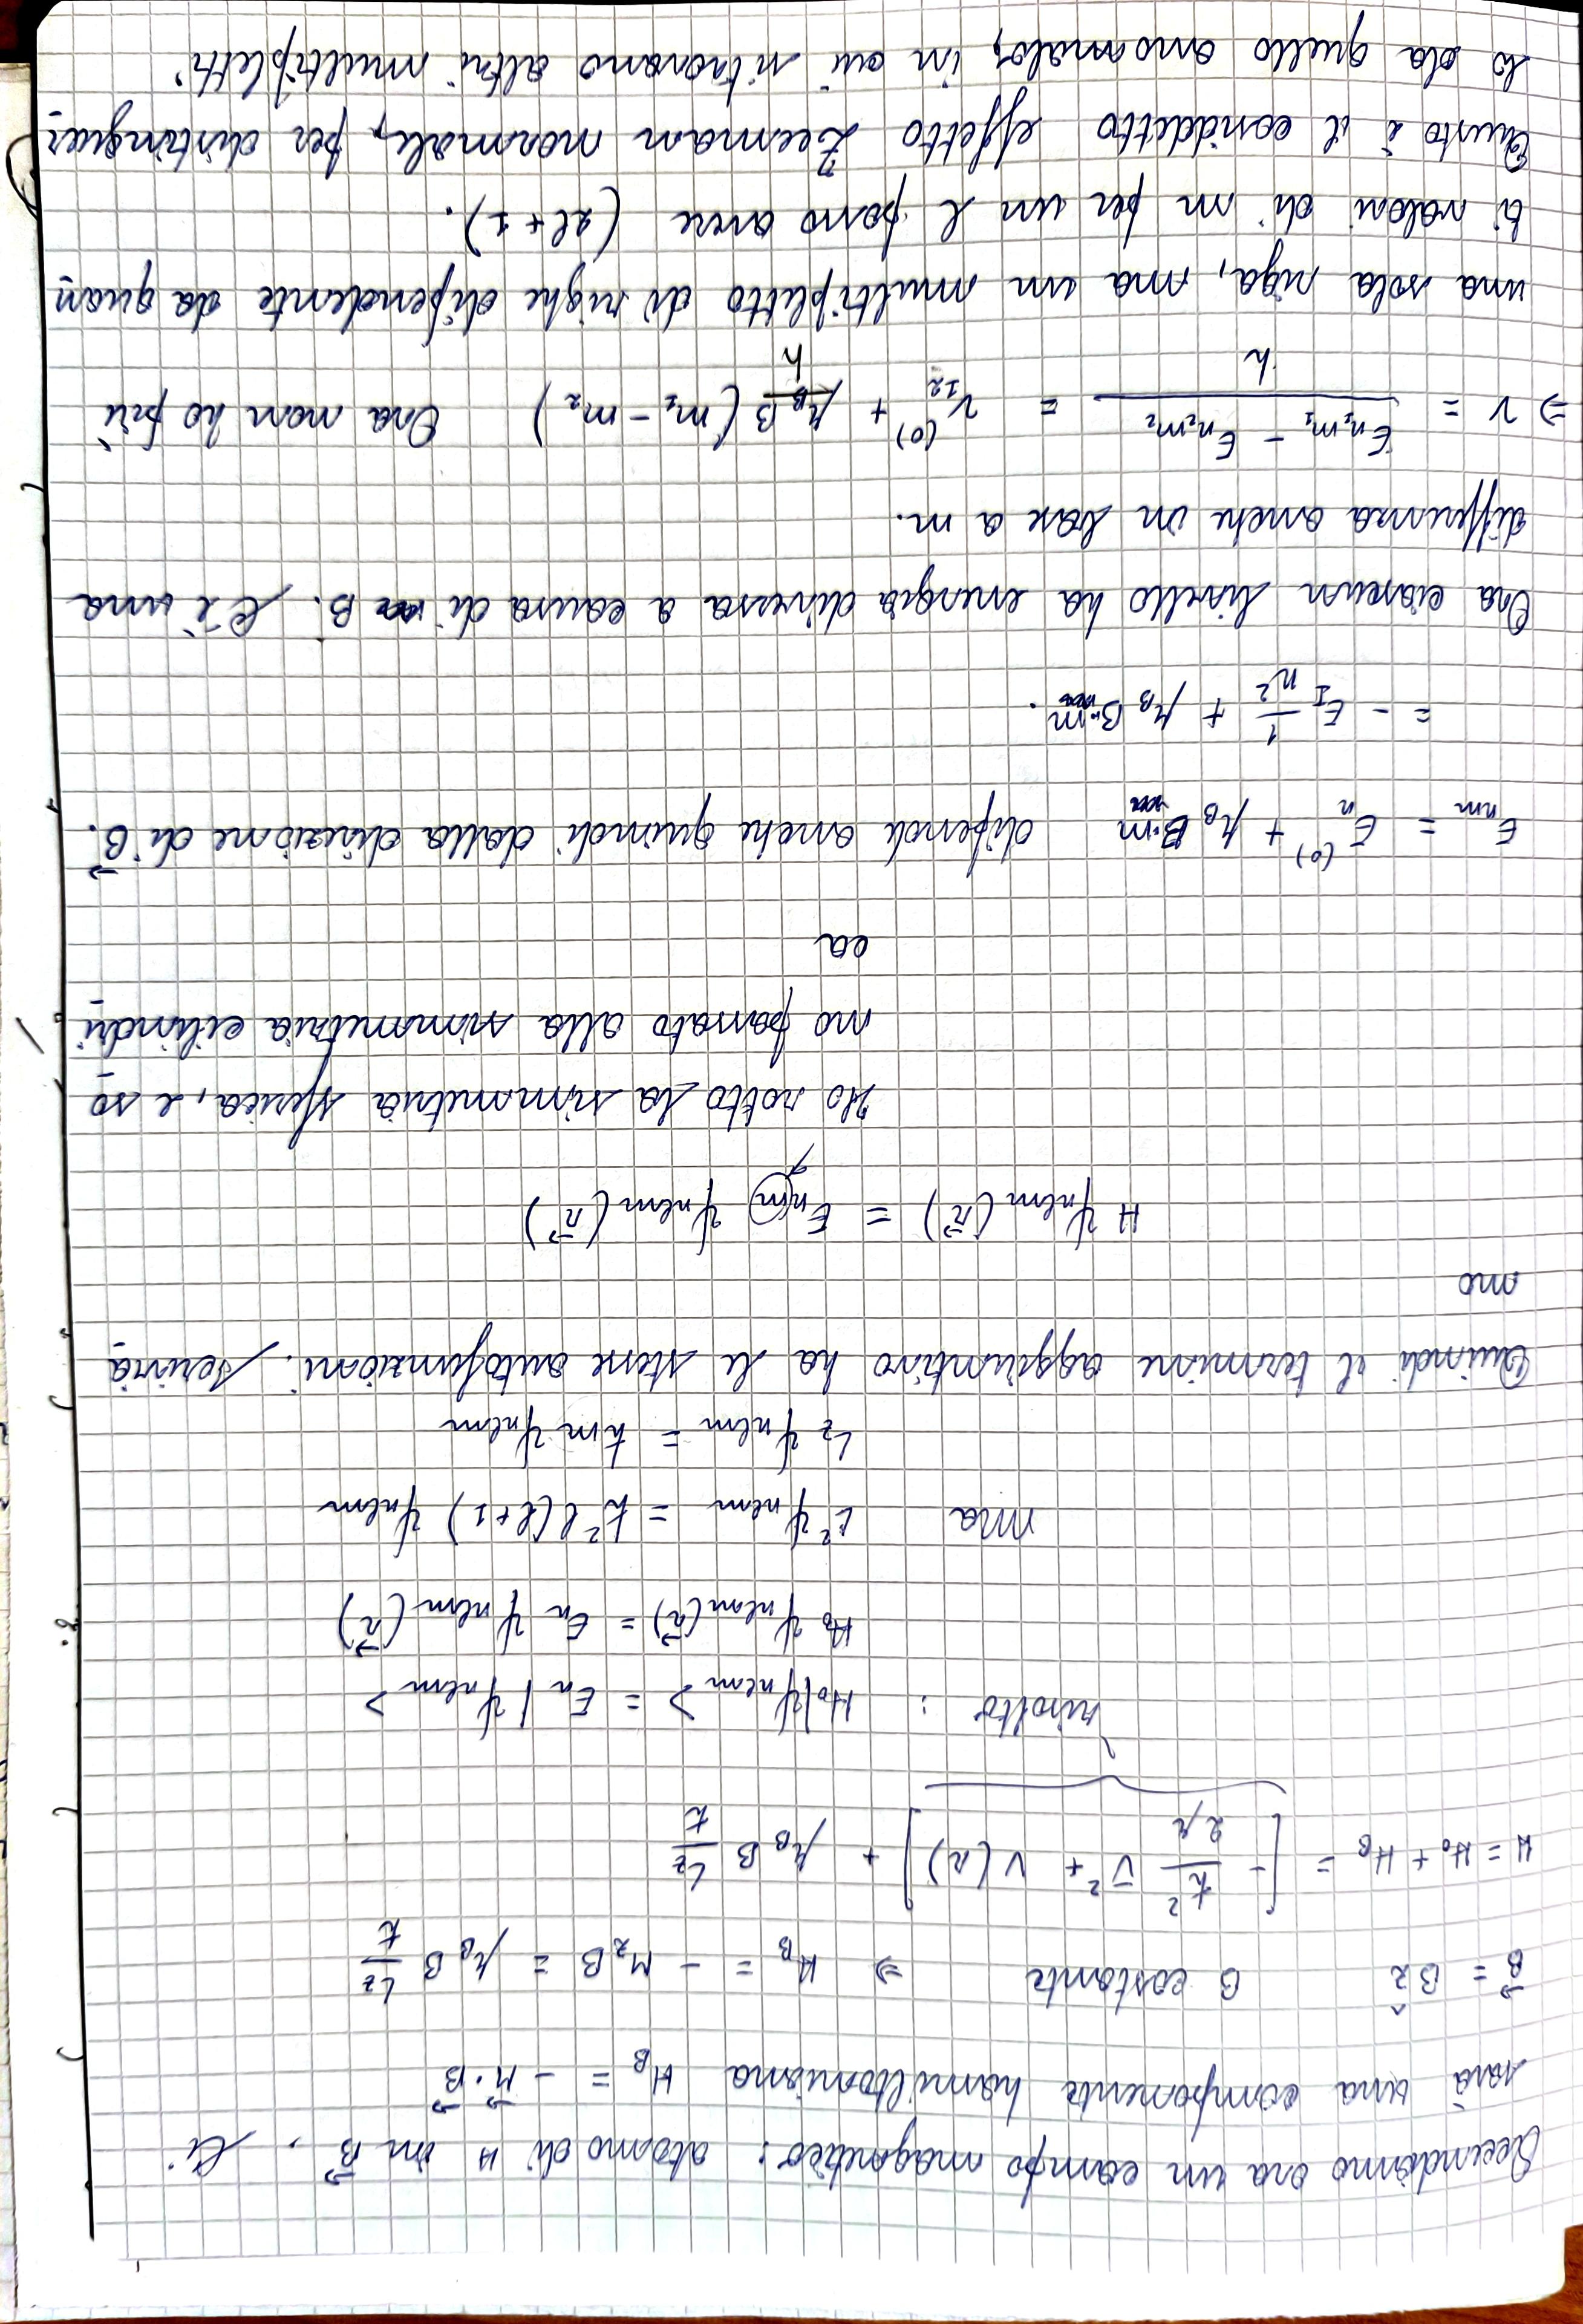 Accendiamo ora un campo magnetico: atomo di H in \vec{B}. Ci
sarà una componente hamiltoniana H_B = - \vec{M}·\vec{B}
\vec{B} = B\hat{z} B costante ⇒ H_B = - M_z B = μ_B B \frac{L_z}{ħ}
H = H_0 + H_B = [- \frac{ħ^2}{2μ} ∇^2 + V(r)] + μ_B B \frac{L_z}{ħ}
risolto : H_0|ψ_{nlm}> = E_n|ψ_{nlm}>
H_0 ψ_{nlm}(\vec{r}) = E_n ψ_{nlm}(\vec{r})
ma L^2 ψ_{nlm} = ħ^2 l(l+1) ψ_{nlm}
L_z ψ_{nlm} = ħm ψ_{nlm}
Quindi il termine aggiuntivo ha le stesse autofunzioni. Scrivia
mo
H ψ_{nlm}(\vec{r}) = E_{nm} ψ_{nlm}(\vec{r})
Ho rotto la simmetria sferica, e so
no passato alla simmetria cilindri
ca
E_{nm} = E_n^{(0)} + μ_B B·m dipende anche quindi dalla direzione di \vec{B}.
= - E_I \frac{1}{n^2} + μ_B B·m.
Ora ciascun livello ha energia diversa a causa di B. C'è una
differenza anche in base a m.
⇒ ν = \frac{E_{n_1m_1} - E_{n_2m_2}}{h} = ν_{12}^{(0)} + \frac{μ_B B}{h} (m_1 - m_2) Ora non ho più
una sola riga, ma un multipletto di righe dipendente da quan
ti valori di m per un l posso avere (2l+1).
Questo è il cosiddetto effetto Zeeman normale, per distinguer
lo da quello anomalo, in cui si trovano altri multipletti.